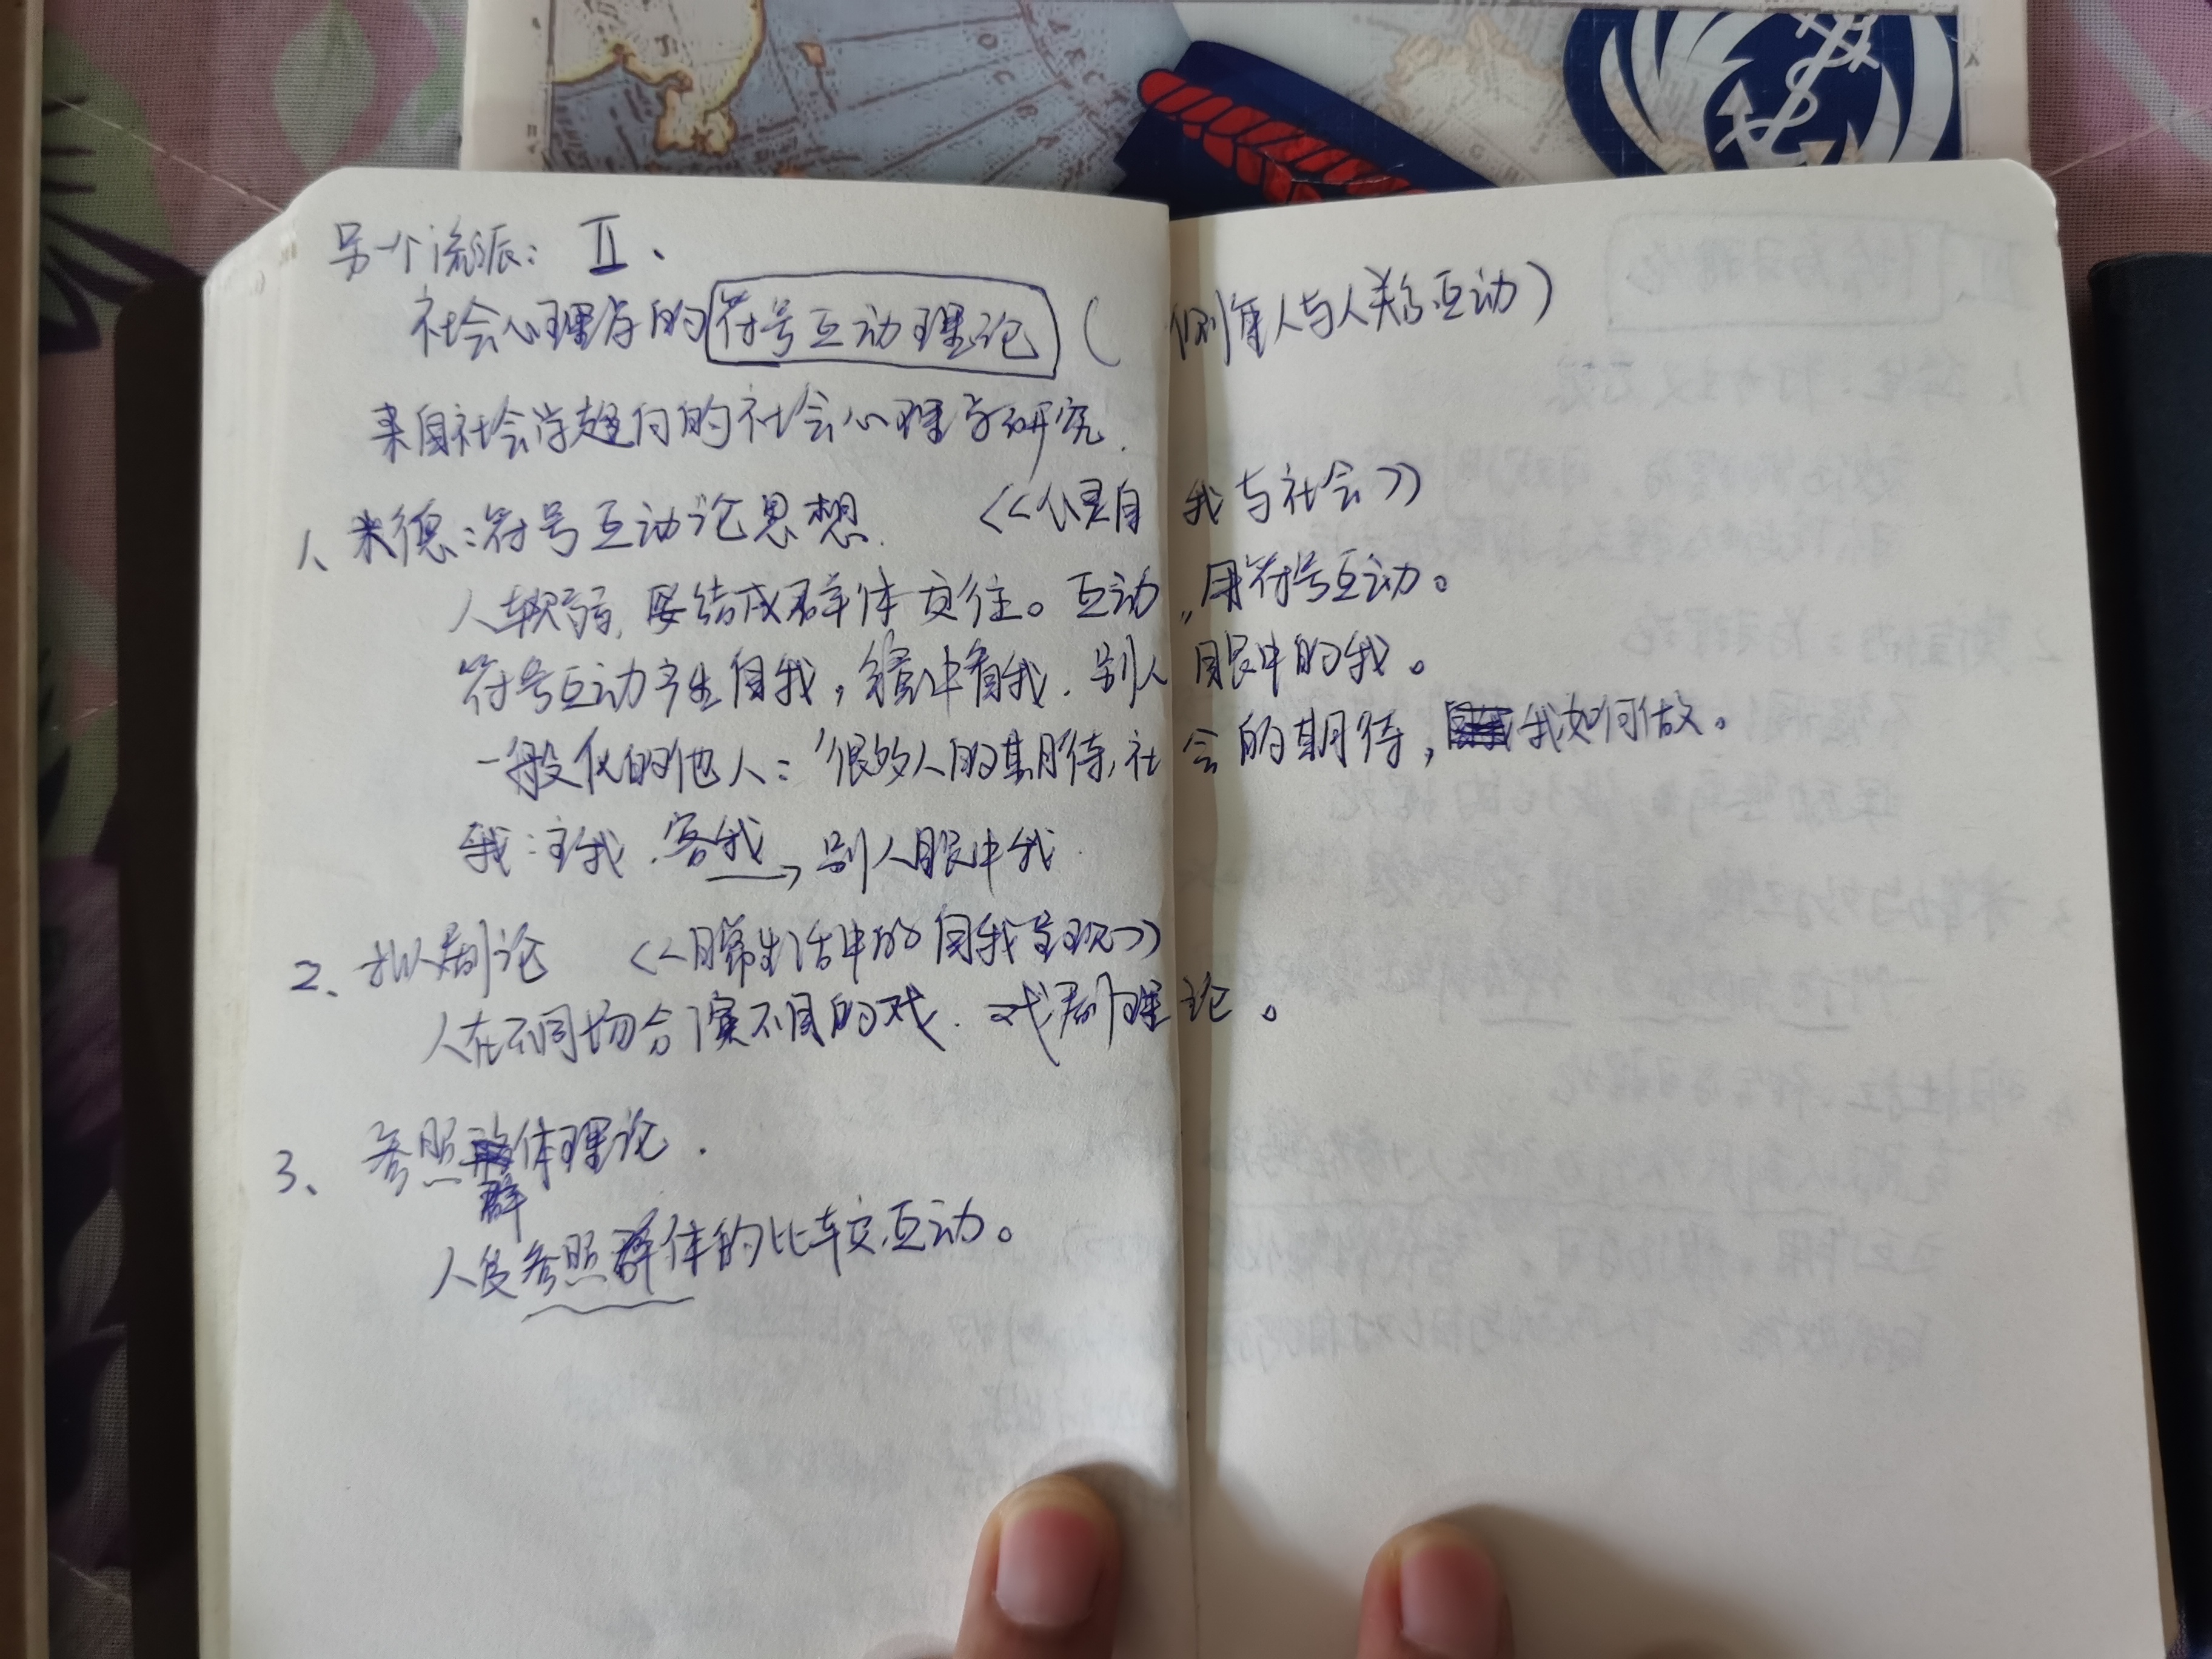 另一个流派：Ⅱ、
社会心理学的符号互动理论（侧重人与人类互动）
来自社会学趋向的社会心理学研究.
1、米德：符号互动论思想.《心灵自我与社会》
人软弱，要结成群体交往。互动，用符号互动。
符号互动产生自我，镜中看我.别人眼中的我。
一般化的他人：很多人的期待，社会的期待，我如何做。
我：主我.客我→别人眼中我.
2、拟剧论《日常生活中的自我呈现》
人在不同场合演不同的戏.戏剧理论。
3、参照群体理论.
人受参照群体的比较互动。